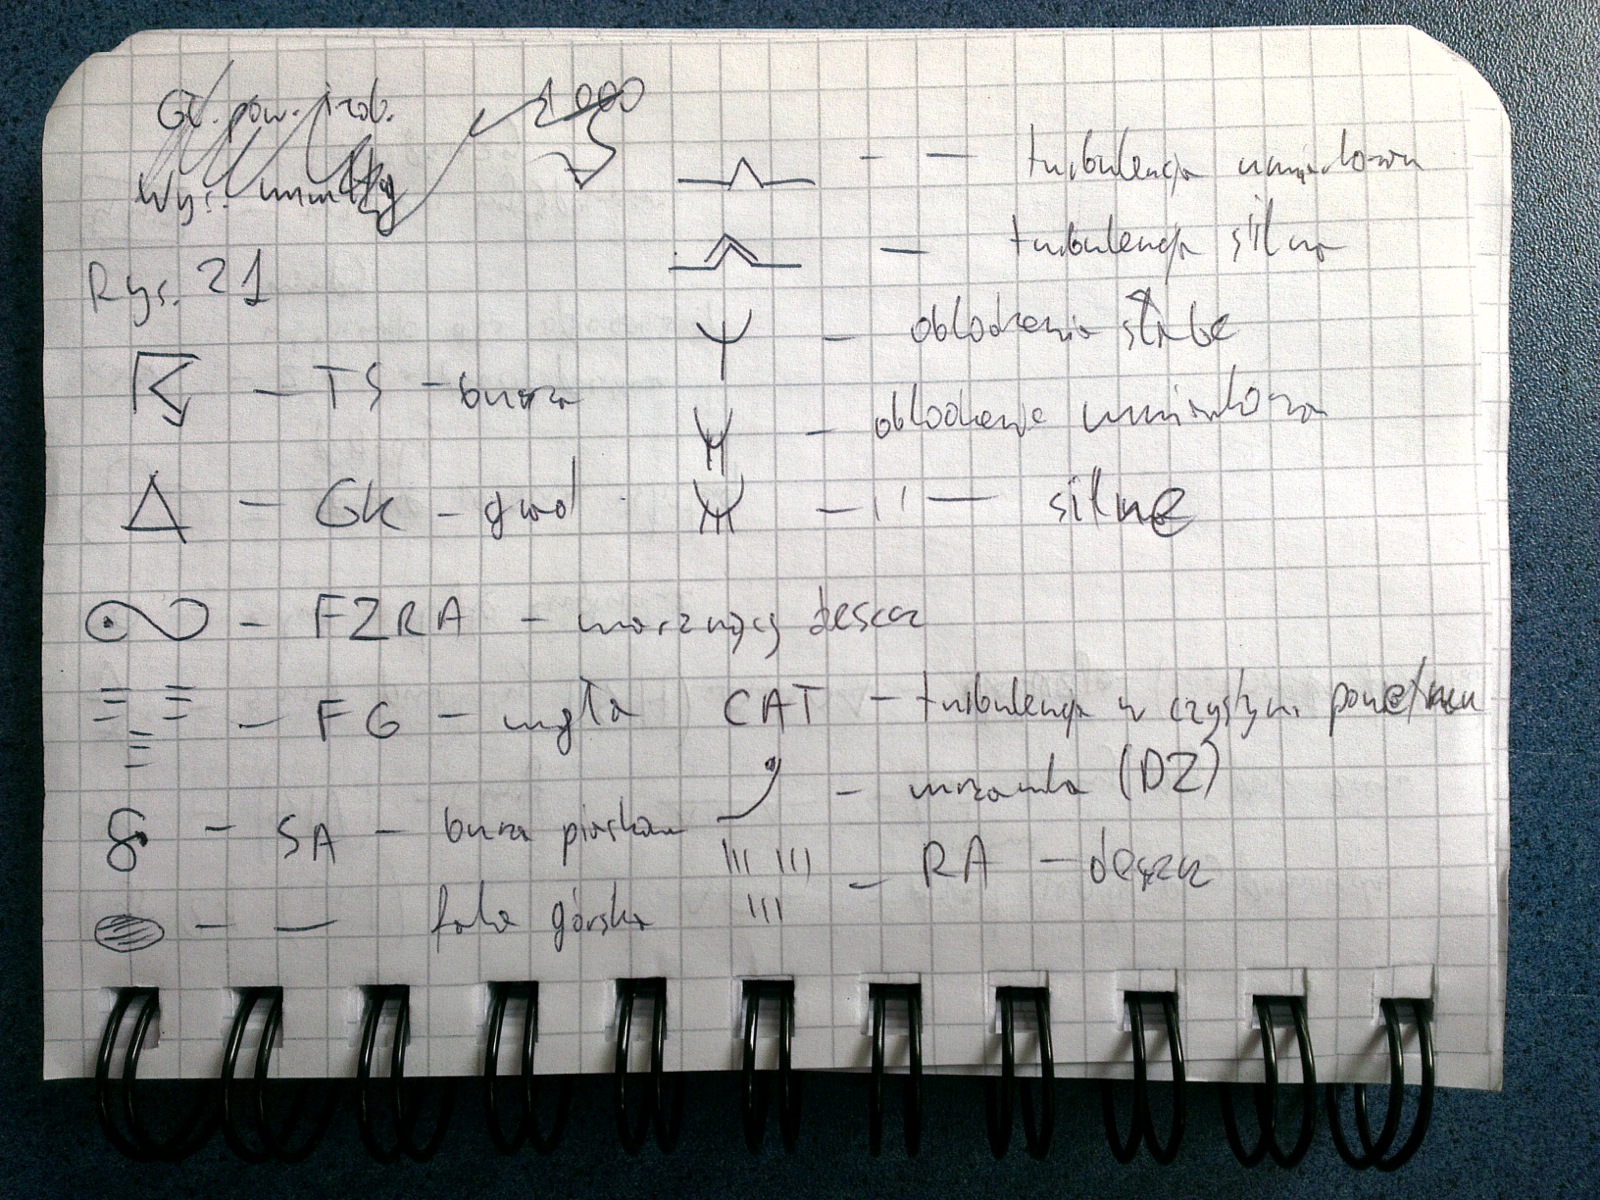 Gł. pow. izob.
1000
Wys.
Rys. 21
— TS — burza
— GK — grad
— FZRA — marznący deszcz
— FG — mgła
— SA — burza piaskowa
— — fala górska
— — turbulencja umiarkowana
— turbulencja silna
— oblodzenie słabe
— oblodzenie umiarkowane
— 11 — silne
CAT — turbulencja w czystym powietrzu
— mżawka (DZ)
— RA — deszcz